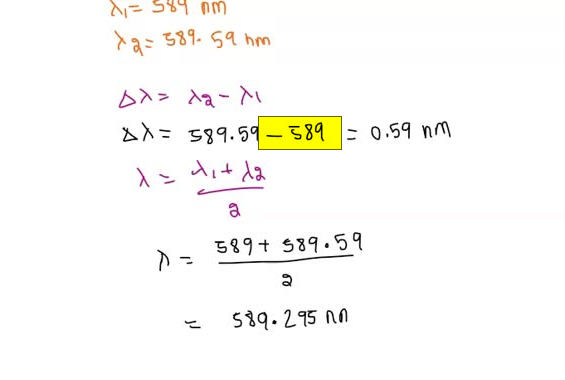 λ₁= 589 nm
λ2= 589.59 nm
Δλ= λ2 - λ1
Δλ= 589.59 - 589 = 0.59 nm
λ = λ1 + λ2
2
λ = 589 + 589.59
2
= 589.295 nm